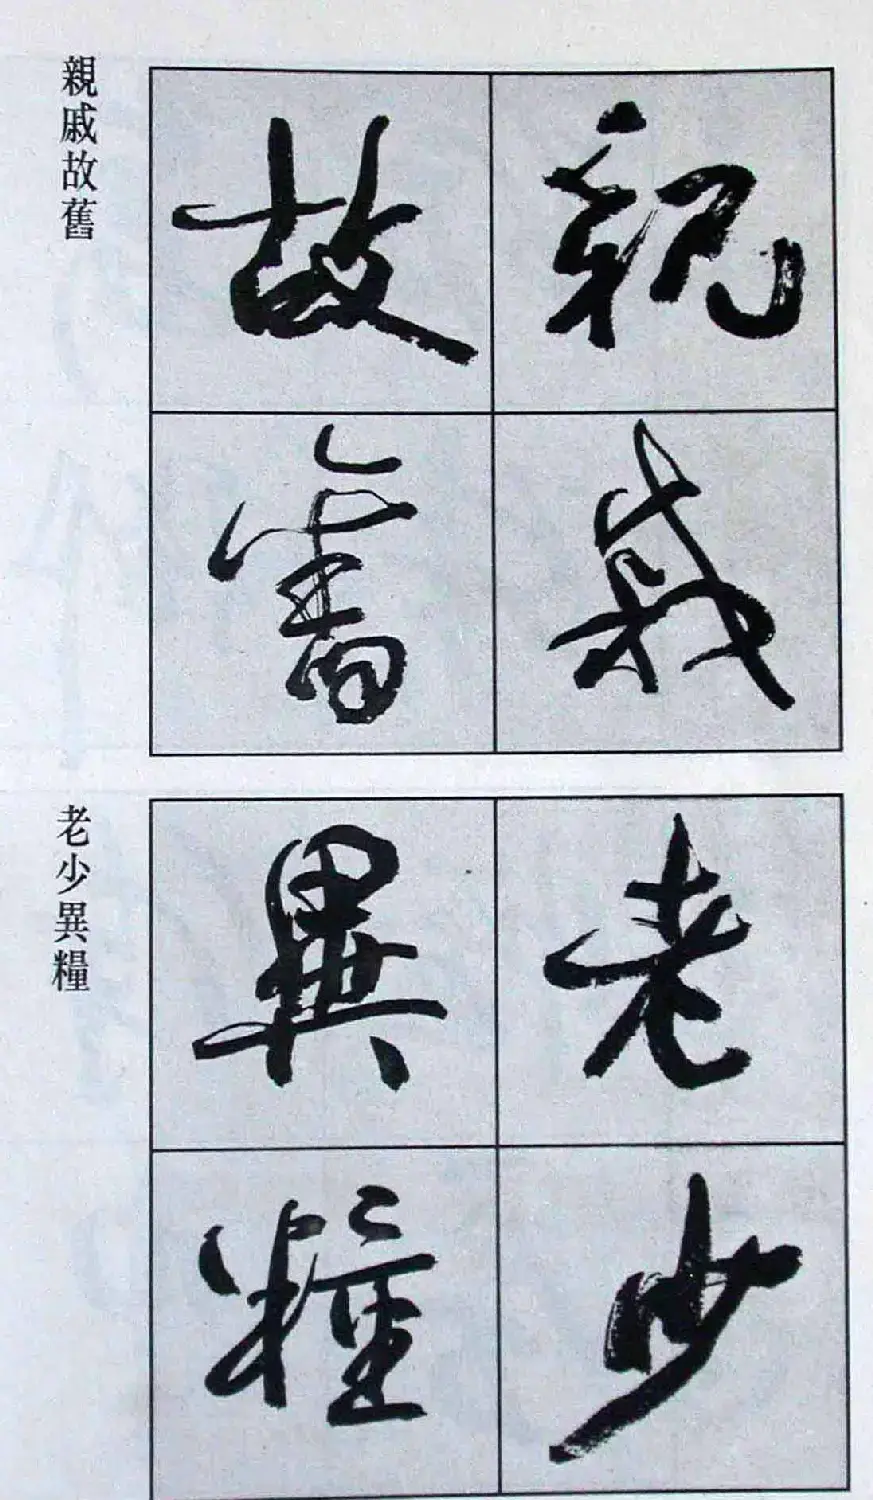 親戚
故舊
親戚故舊
老少
異糧
老少異糧